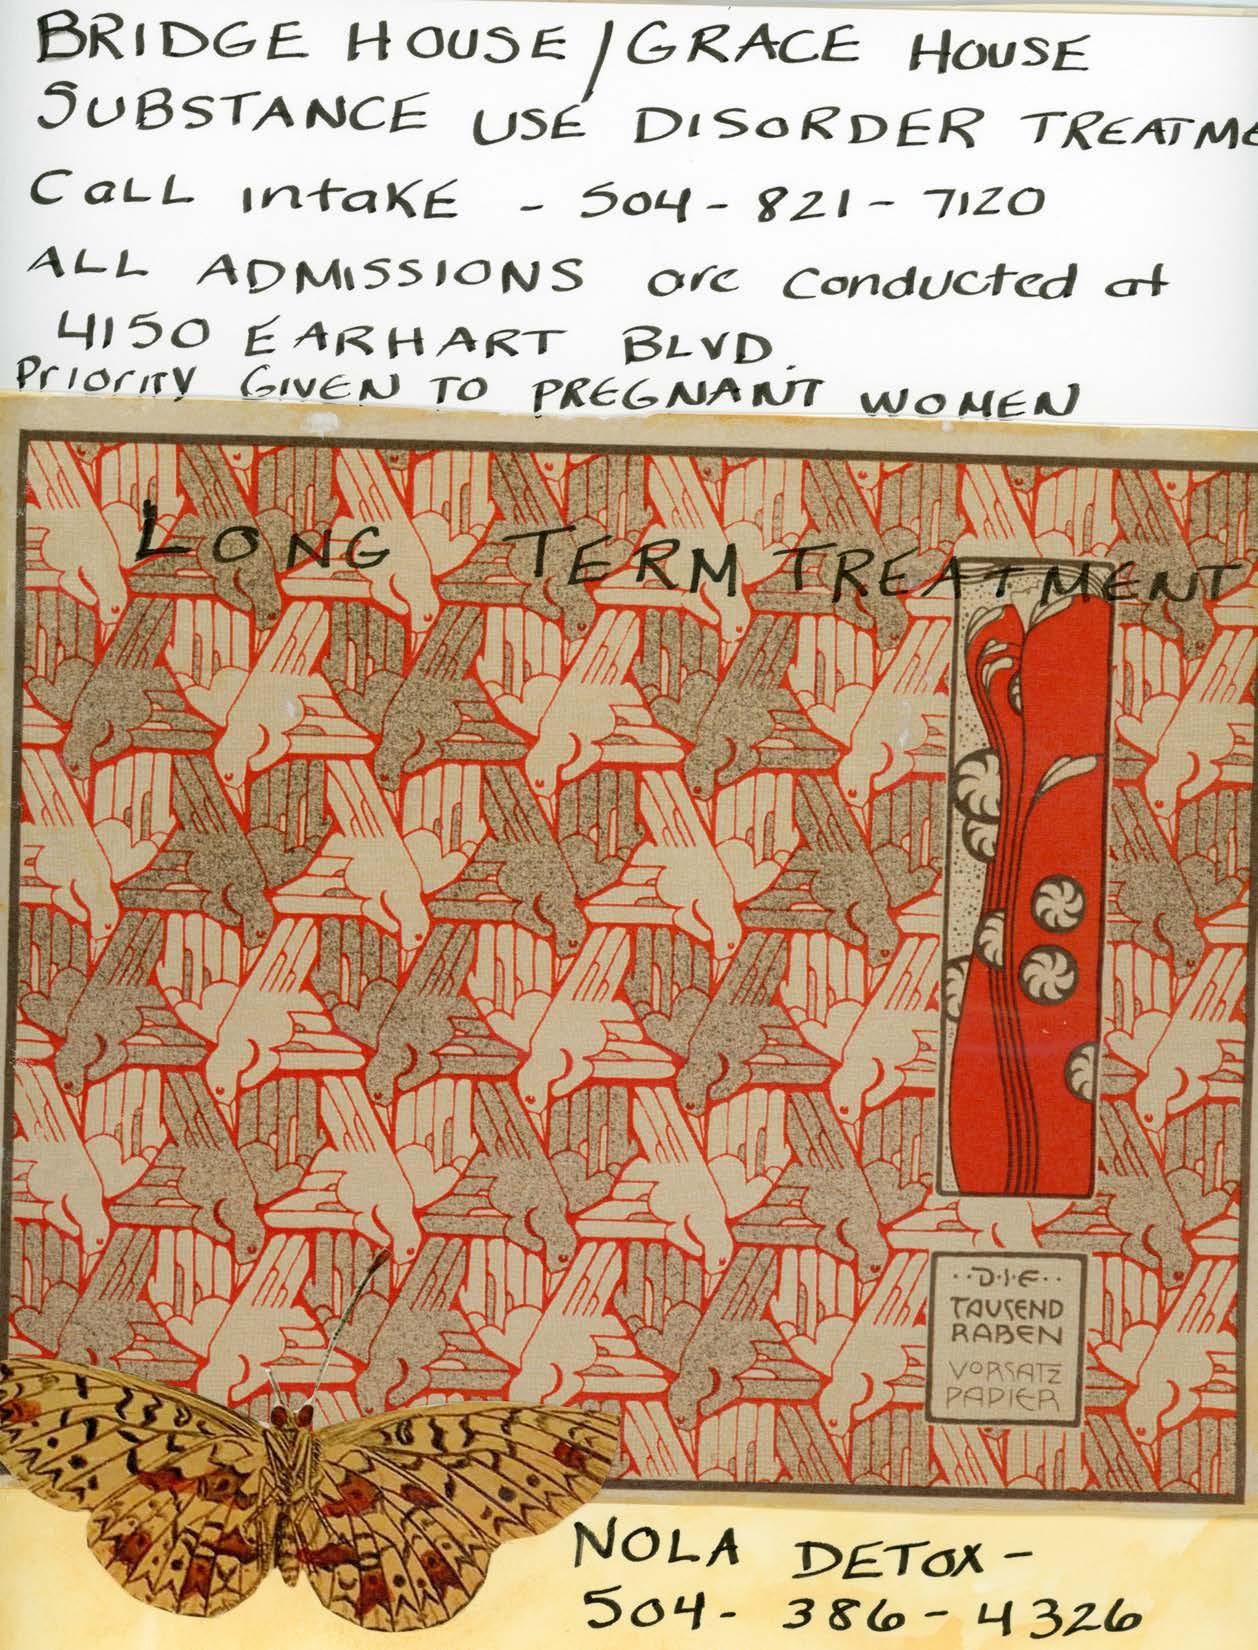 BRIDGE HOUSE/GRACE HOUSE
SUBSTANCE USE DISORDER TREATME
Call intake - 504-821-7120
ALL ADMISSIONS are conducted at
4150 EARHART BLVD.
Priority GIVEN TO PREGNANT WOMEN
LONG TERM TREATMENT
··D·I·E··
TAUSEND
RABEN
VORSATZ
PAPIER
NOLA DETOX-
504-386-4326